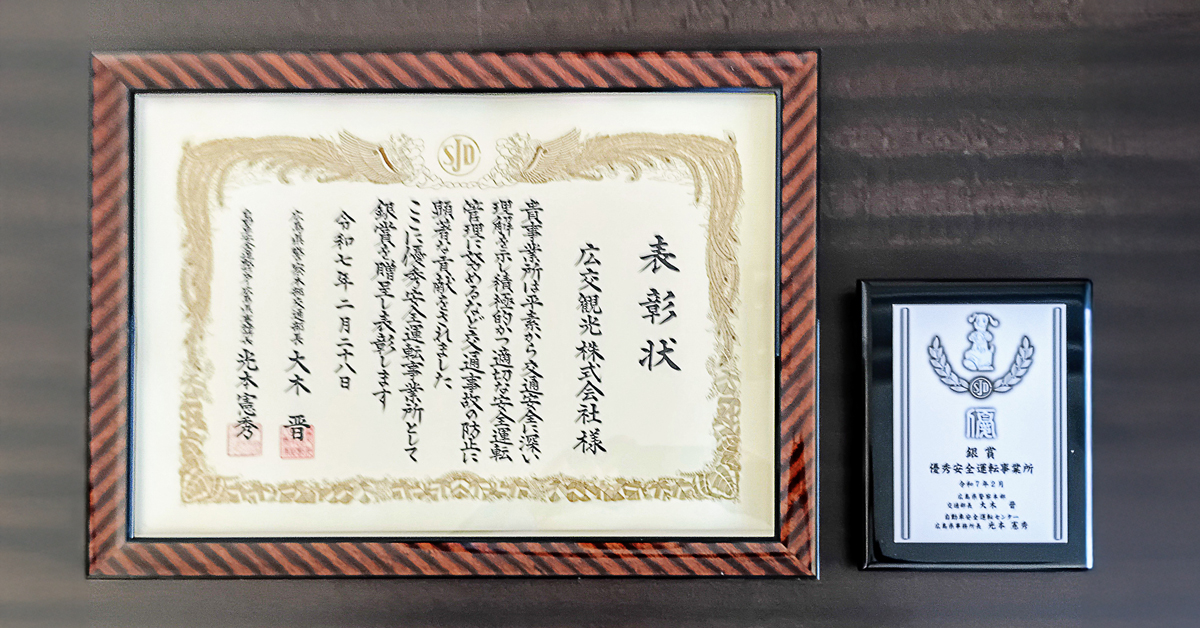 SJD
表彰状
広交観光株式会社様
貴事業所は平素から交通安全に深い
理解を示し積極的かつ適切な安全運転
管理に努めるなど交通事故の防止に
顕著な貢献をされました
ここに優秀安全運転事業所として
銀賞を贈呈し表彰します
令和七年二月二十八日
広島県警察本部交通部長 大木 晋
自動車安全運転センター広島県事務所長 光本憲秀
SJD
優
銀賞
優秀安全運転事業所
令和7年2月
広島県警察本部
交通部長 大木 晋
自動車安全運転センター
広島県事務所長 光本 憲秀